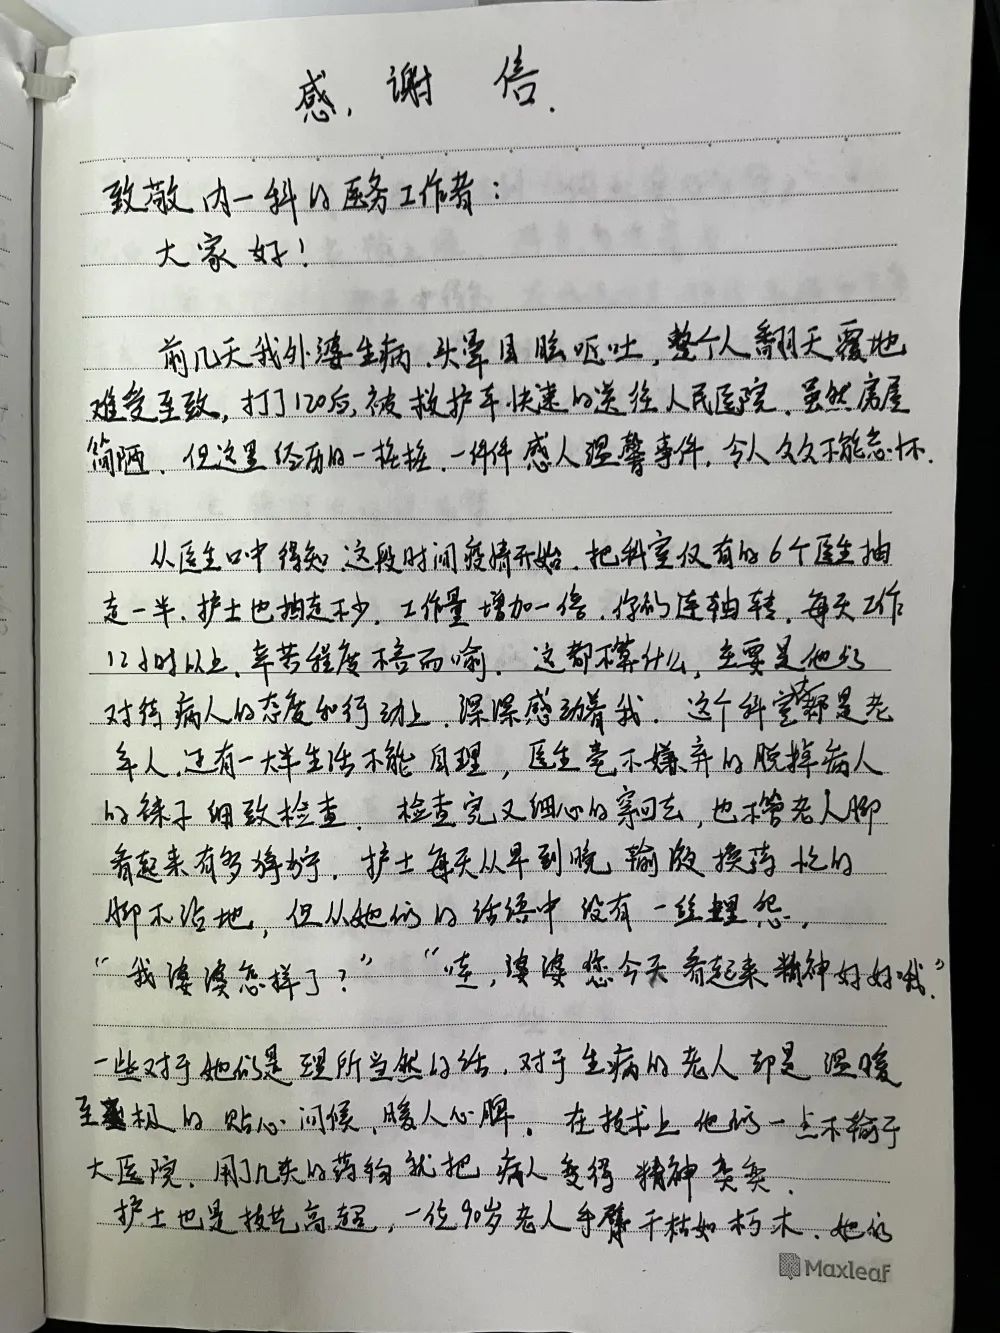 感谢信.
致敬内一科的医务工作者：
大家好！
前几天我外婆生病.头晕目眩呕吐,整个人翻天覆地
难受至致,打了120后,被救护车快速的送往人民医院.虽然房屋
简陋.但这里经历的一桩桩.一件件感人温馨事件.令人久久不能忘怀.
从医生口中得知这段时间疫情开始.把科室仅有的6个医生抽
走一半.护士也抽走不少.工作量增加一倍.你们连轴转.每天工作
12小时以上.辛苦程度不言而喻.这都不算什么,主要是他们
对待病人的态度和行动上.深深感动着我.这个科室都是老
年人.还有一大半生活不能自理,医生毫不嫌弃的脱掉病人
的袜子细致检查.检查完又细心的穿回去,也不管老人脚
看起来有多狰狞.护士每天从早到晚输液换药忙的
脚不沾地,但从她们的话语中没有一丝埋怨.
"我婆婆怎样了?" "哇,婆婆您今天看起来精神好好哦"
一些对于她们是理所当然的话.对于生病的老人却是温暖
至极的贴心问候,暖人心脾.在技术上他们一点不输于
大医院.用了几天的药物就把病人变得精神奕奕.
护士也是技艺高超,一位90岁老人手臂干枯如朽木.她们
Maxleaf